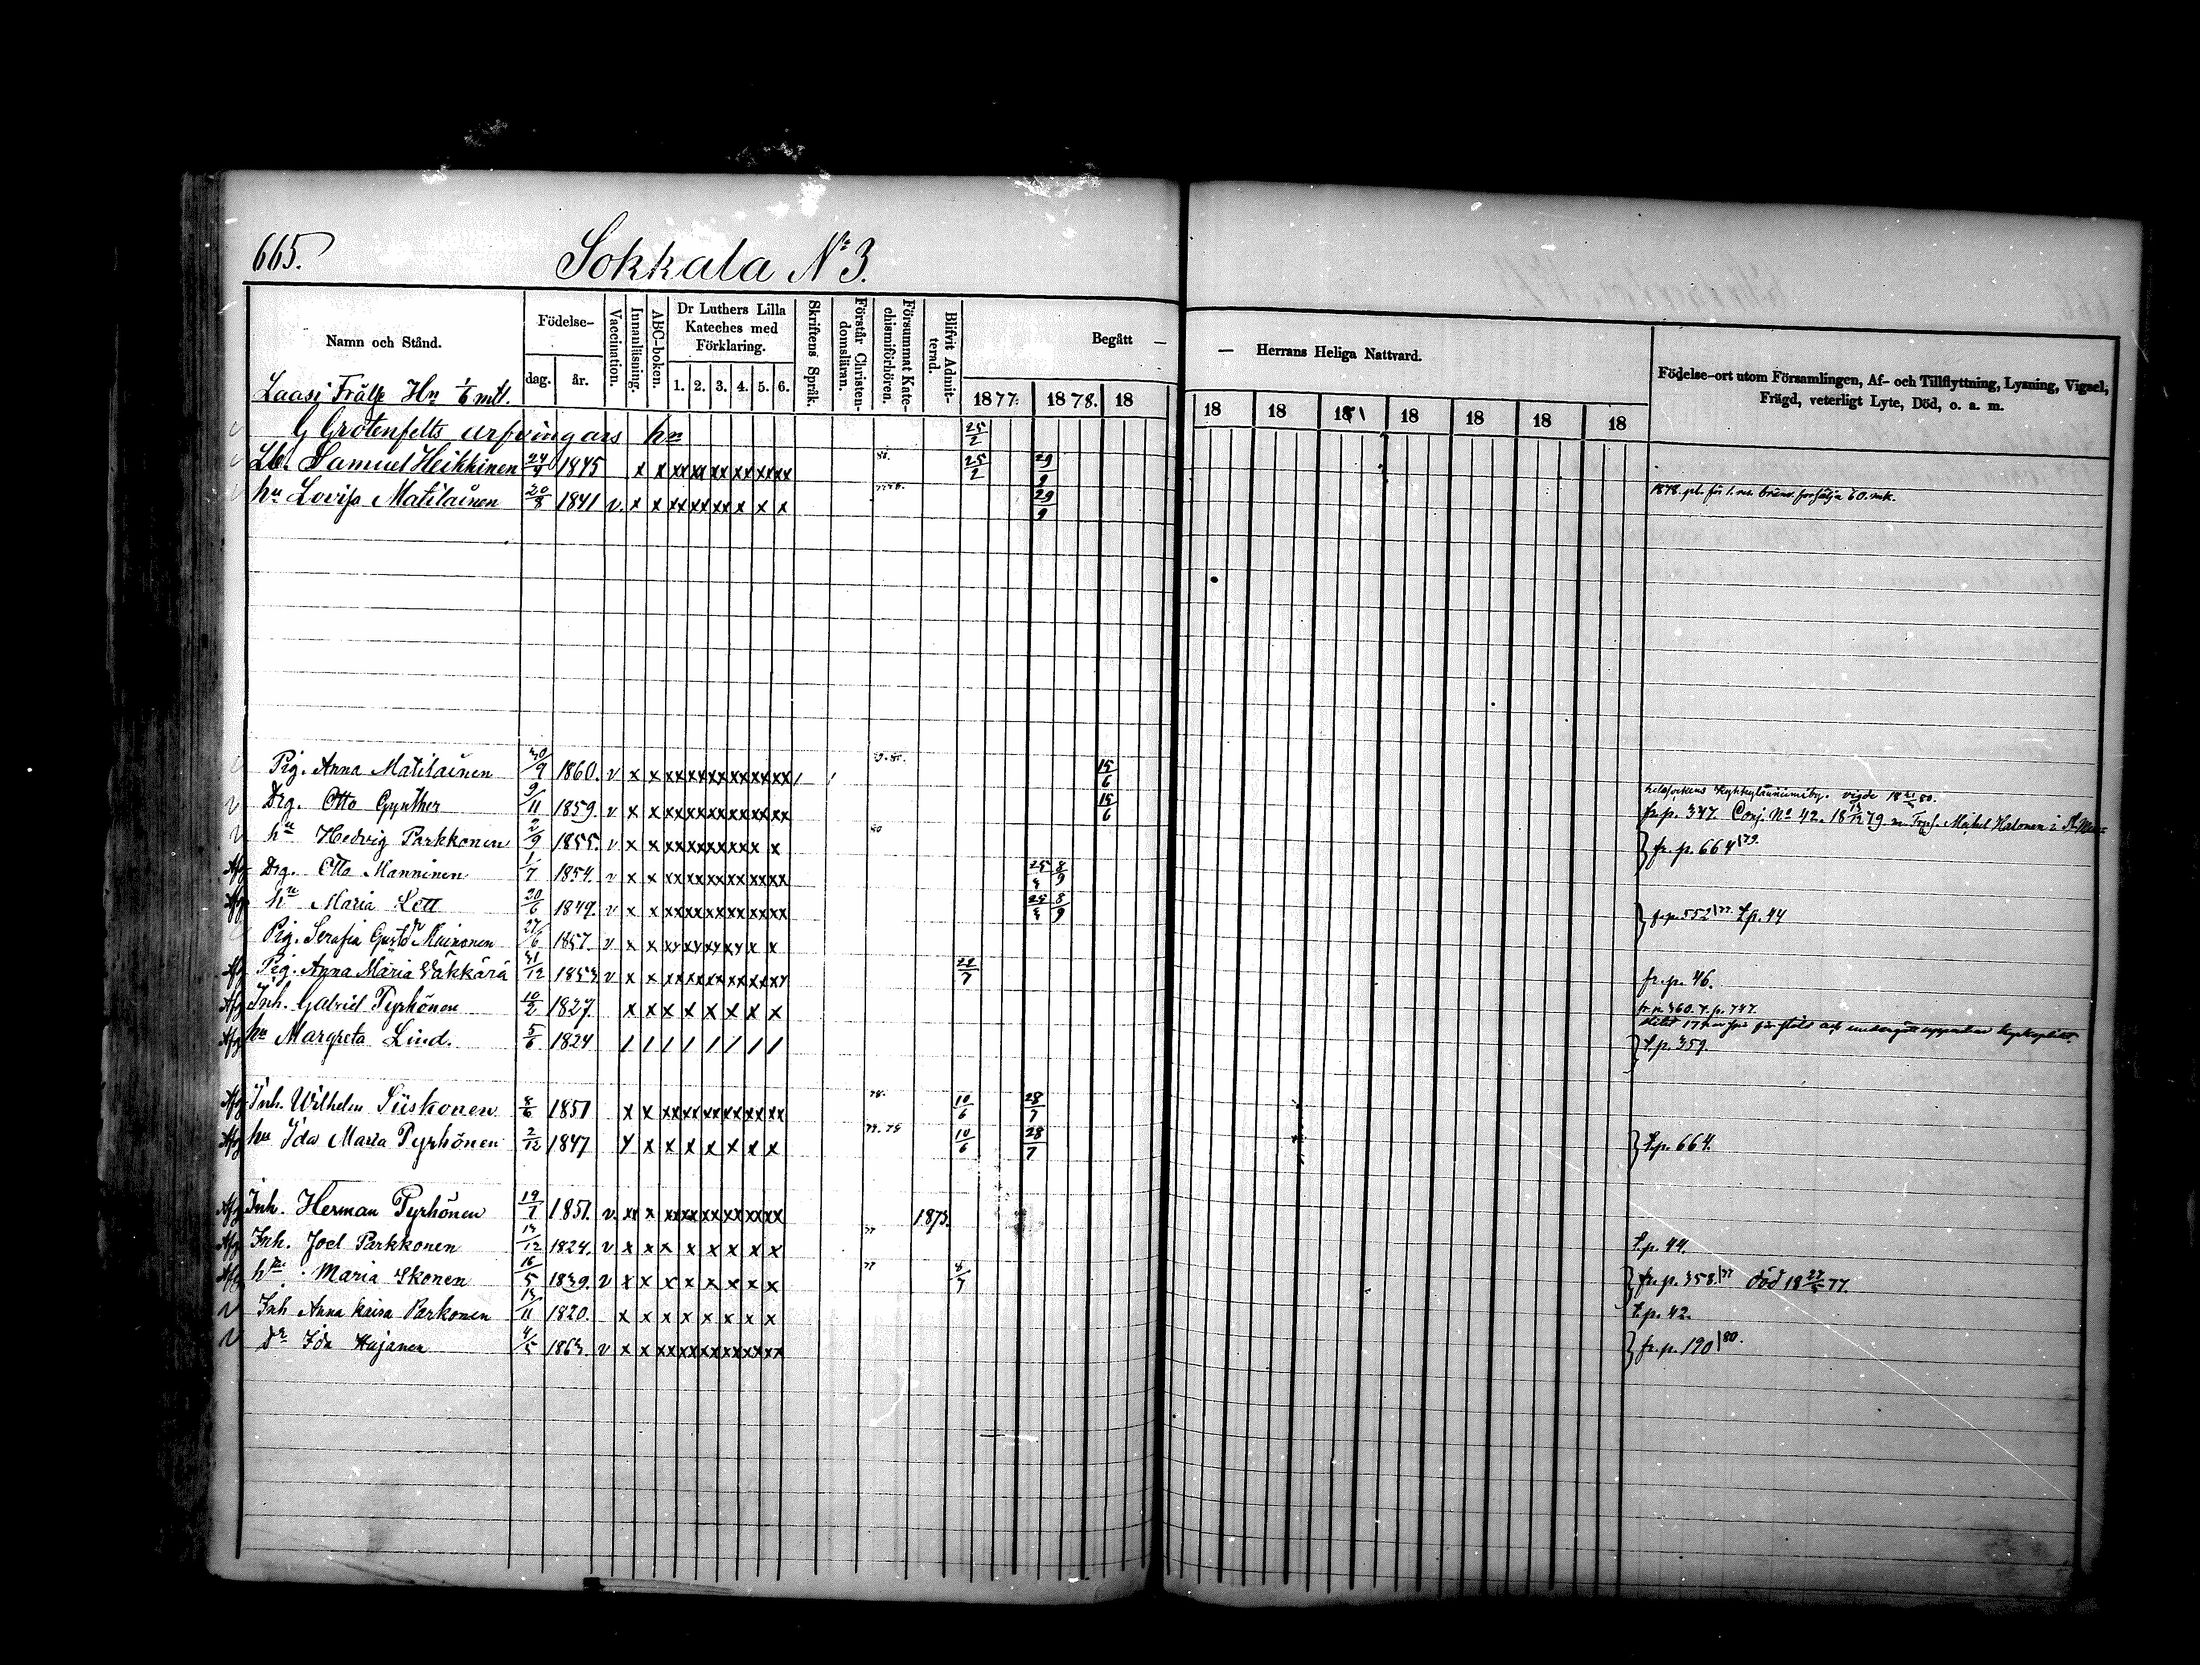 665.
Sokkala No 3.
Namn och Stånd.
Födelse-
dag. år.
Vaccination.
Innanläsning.
ABC-boken.
Dr Luthers Lilla Kateches med Förklaring.
1. 2. 3. 4. 5. 6.
Skriftens Språk.
Förstår Christendomsläran.
Försummat Katechismiförhören.
Blifvit Admitterad.
Begått — — Herrans Heliga Nattvard.
1877. 1878. 18 18 18 18 18 18 18 18
Födelse-ort utom Församlingen, Af- och Tillflyttning, Lysning, Vigsel, Frägd, veterligt Lyte, Död, o. a. m.
Laasi Frälse Hn 1/6 mtl.
G Grotenfelts arfvingars hn 25/2
Lb. Samuel Heikkinen 24/4 1845 x x xx xx xx xx xx xx 25/2 29/9
hu Lovisa Matilainen 20/8 1841 v. x x xx xx xx x x x 29/9
Pig. Anna Matilainen 30/9 1860. v x x xx xx xx xx xx xx 15/6
Drg. Otto Gynther 9/11 1859. v x x xx xx xx xx xx xx 15/6 fr. p. 347. Conj. No 42.
hu Hedvig Parkkonen 2/9 1855. v x x xx xx xx xx x x } fr. p. 664/79.
Afg Drg. Otto Manninen 1/7 1854. v x x xx xx xx xx xx xx 8/9
Afg hu Maria Lett 20/6 1849. v x x xx xx xx xx xx xx 8/9 } fr. p. 552/77. t. p. 44
Pig. Serafia Gustdr Kainonen 27/6 1857. v x x xx xx xx xx x x
Afg Pig. Anna Maria Väkkärä 31/12 1853 v x x xx xx xx xx xx xx 22/7 fr. p. 46.
Afg Inh. Gabriel Pyrhönen 10/2 1827. x x x x x x x x fr. p. 360. t. p. 747.
Afg hu Margreta Lind. 5/6 1824 / / / / / / / / } t. p. 359.
Afg Inh. Wilhelm Siiskonen 8/6 1851 x x xx xx xx xx xx xx 78. 10/6 28/7
Afg hu Ida Maria Pyrhönen 2/12 1847 x x x x x x x x 10/6 28/7 } t. p. 664.
Afg Inh. Herman Pyrhönen 19/7 1851. v. xx x xx xx xx xx xx xx 1873.
Afg Inh. Joel Parkkonen 13/12 1824. v x x x x x x x x 77 t. p. 44.
Afg hu Maria Ikonen 16/5 1839. v x x x x x x x x 77 } fr. p. 358./77 död
v Inh Anna Kaisa Parkonen 13/11 1820. x x x x x x x x t. p. 42.
v dr Ida Hajanen 4/5 1863. v x x xx xx xx xx xx xx } fr. p. 190/80.